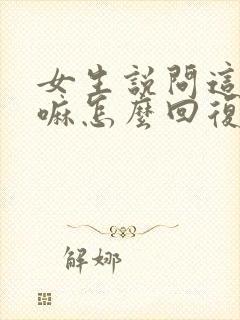 女生說問這
嘛怎麼回復
解娜